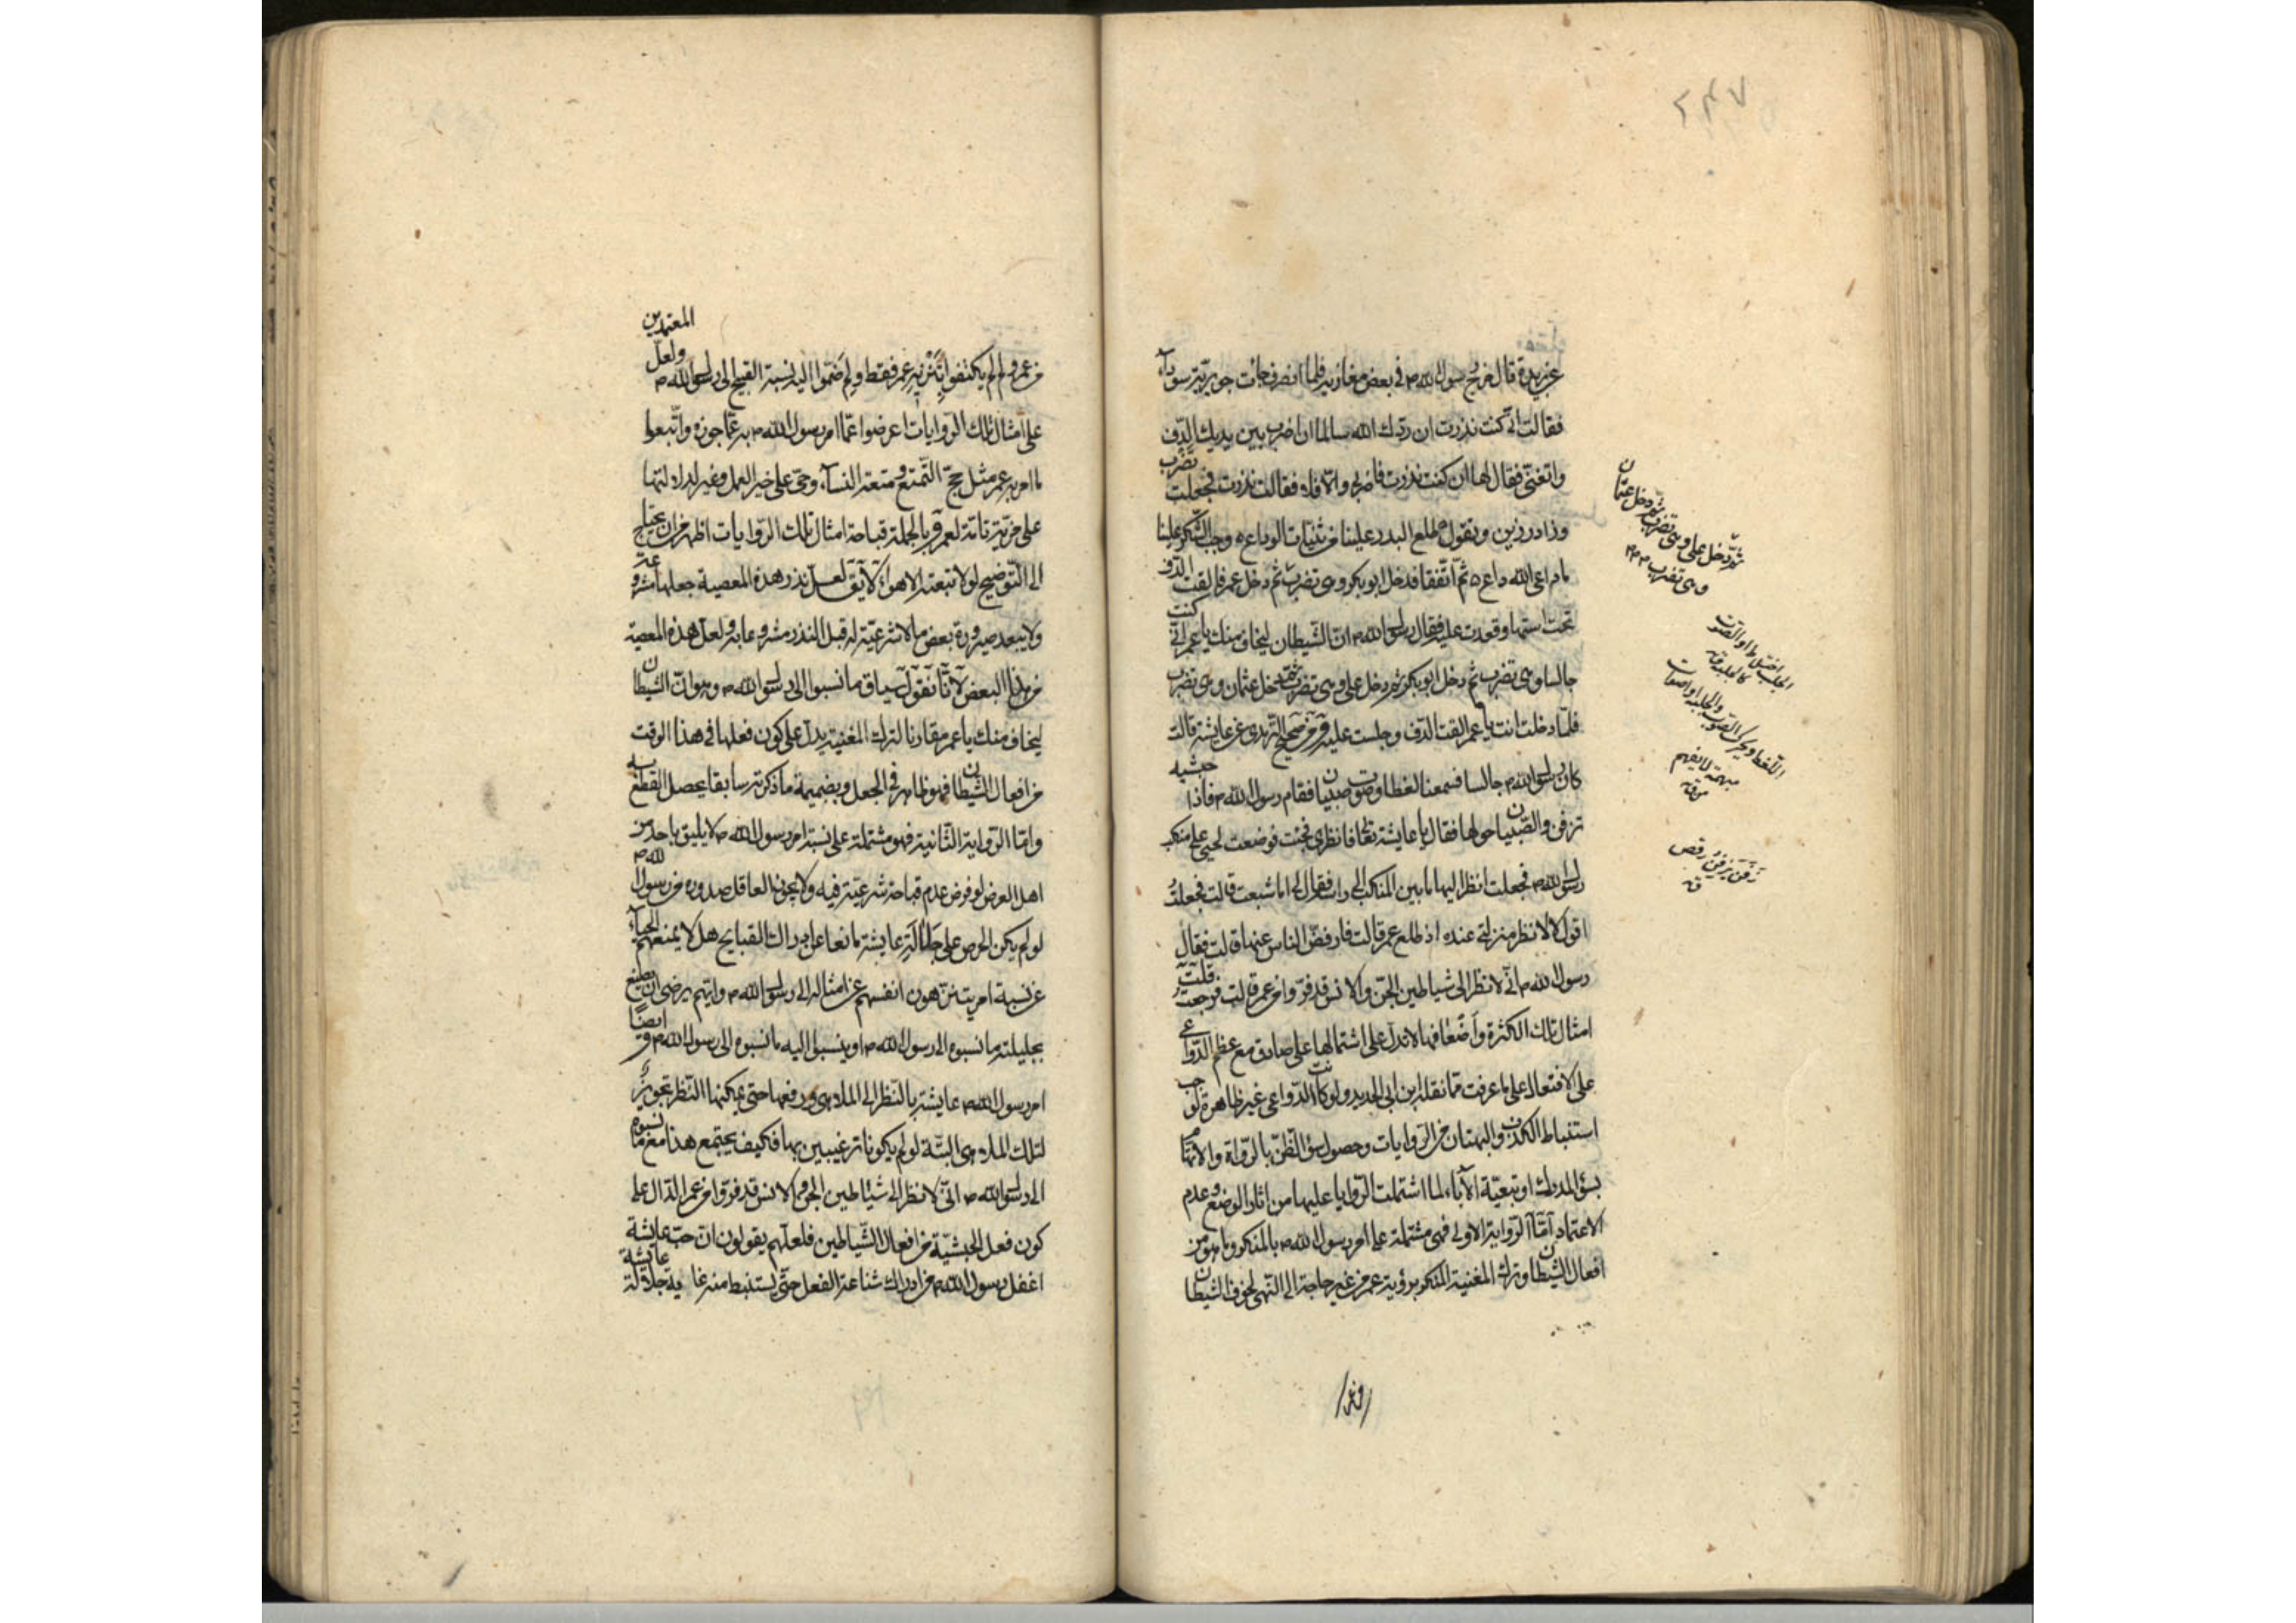 ٢٤٧
عن بريدة قال خرج رسول الله ص في بعض مغازيه فلما انصرف جائت جويرية سوداء
فقالت انّي كنت نذرت ان ردّك الله سالما ان اضرب بين يديك الدّف
واتغنّى فقال لها ان كنت نذرت فاضربي والّا فلا فقالت نذرت فجعلت تضرب
وزاد رزين وتقول طلع البدر علينا من ثنيّات الوداع ه وجب الشّكر علينا
ما دعى الله داع ه ثم اتّفقا فدخل ابو بكر وهي تضرب ثم دخل عمر فالقت الدّف
تحت استها وقعدت عليه فقال رسول الله ص انّ الشّيطان ليخاف منك يا عمر انّي كنت
جالسا وهي تضرب ثم دخل ابو بكر ثم دخل علي وهي تضرب ثم دخل عثمان وهي تضرب
فلمّا دخلت انت يا عمر القت الدّف وجلست عليه وفي صحيح التّرمذي عن عايشة قالت
كان رسول الله ص جالسا فسمعنا لغطا وصوت صبيان فقام رسول الله ص فاذا حبشيه
تزفن والصّبيان حولها فقال يا عايشة تعالي فانظري فجئت فوضعت لحيي على منكب
رسول الله ص فجعلت انظر اليها ما بين المنكب الى راسه فقال لي اما شبعت قالت فجعلت
اقول لا لانظر منزلتي عنده اذ طلع عمر قالت فارفضّ الناس عنها قالت فقال
رسول الله ص انّي لانظر الى شياطين الجنّ والانس قد فرّوا من عمر قالت فرجعت قلت
امثال تلك الكثرة واضعافها لا تدلّ على اشتمالها على صادق مع عظم الدّواعي
على الافتعال على ما عرفت ممّا نقله ابن ابي الحديد ولو كانت الدّواعي غير ظاهرة لوجب
استنباط الكذب والبهتان من الرّوايات وحصول سوء الظّنّ بالرّواة والاتّهام
بسوء المدرك او تبعيّة الآباء لما اشتملت الرّوايا عليها من اثار الوضع وعدم
الاعتماد امّا الرّواية الاولى فهي مشتملة على امر رسول الله ص بالمنكر وما هو من
افعال الشيطان وترك المغنية المنكر برؤية عمر من غير حاجة الى النّهي لخوف الشيطان
ثم دخل علي وهي تضرب ثم دخل عثمان
وهي تضرب
زفن يزفن رقص
ق
من عمر ولم لم يكتفوا بتنزيه عمر فقط ولم ضمّوا اليه نسبة القبيح الى رسول الله ص ولعلّ المعتمدين
على امثال تلك الرّوايات اعرضوا عمّا امر رسول الله ص به عمّا جوزه واتّبعوا
ما امر به عمر مثل حجّ التّمتع ومتعة النساء وحيّ على خير العمل وغيرها لدلالتها
على مزيّة تامّة لعمر وبالجملة قباحة امثال تلك الرّوايات اظهر من ان يحتاج
الى التّوضيح لولا تبعية الاهواء لا يق لعلّ نذر هذه المعصية جعلها مشروعة
ولا يبعد صيرورة بعض ما لا شرعيّة له قبل النذر مشروعا به ولعل هذه المعصية
من هذا البعض لانّا نقول سياق ما نسبوا الى رسول الله ص وهو انّ الشيطان
ليخاف منك يا عمر مقارنا لترك المغنية يدلّ على كون فعلها في هذا الوقت
من افعال الشيطان فهو ظاهر في الجعل وبضميمة ما ذكرته سابقا يحصل القطع به
وامّا الرّواية الثّانية فهو مشتملة على نسبة امر رسول الله ص لا يليق باحد من
اهل العرض لو فرض عدم قباحة شرعيّة فيه ولا يجوز العاقل صدوره من رسول الله ص
لو لم يكن الحرص على جلالة عايشة مانعا عن ادراك القبايح هل لا يمنعهم الحياء
عن نسبة امر يتنزّهون انفسهم عن امثاله الى رسول الله ص وايّهم يرضى ان يصنع
بحليلته ما نسبوه الى رسول الله ص او ينسبوا اليه ما نسبوه الى رسول الله ص و ايضا
امر رسول الله ص عايشة بالنّظر الى الملاهي ورفعها حتى يمكنها النّظر تجويز
لتلك الملاهي البتّة لو لم يكونا ترغيبين بها فكيف يجتمع هذا مع ما نسبوه
الى رسول الله ص انّي لانظر الى شياطين الجن والانس قد فروا من عمر الدّال على
كون فعل الحبشيّة من افعال الشّياطين فلعلّهم يقولون انّ حبّ عايشة
اغفل رسول الله ص من ادراك شناعة الفعل حتّى يستنبط منه غاية جلالة عايشة